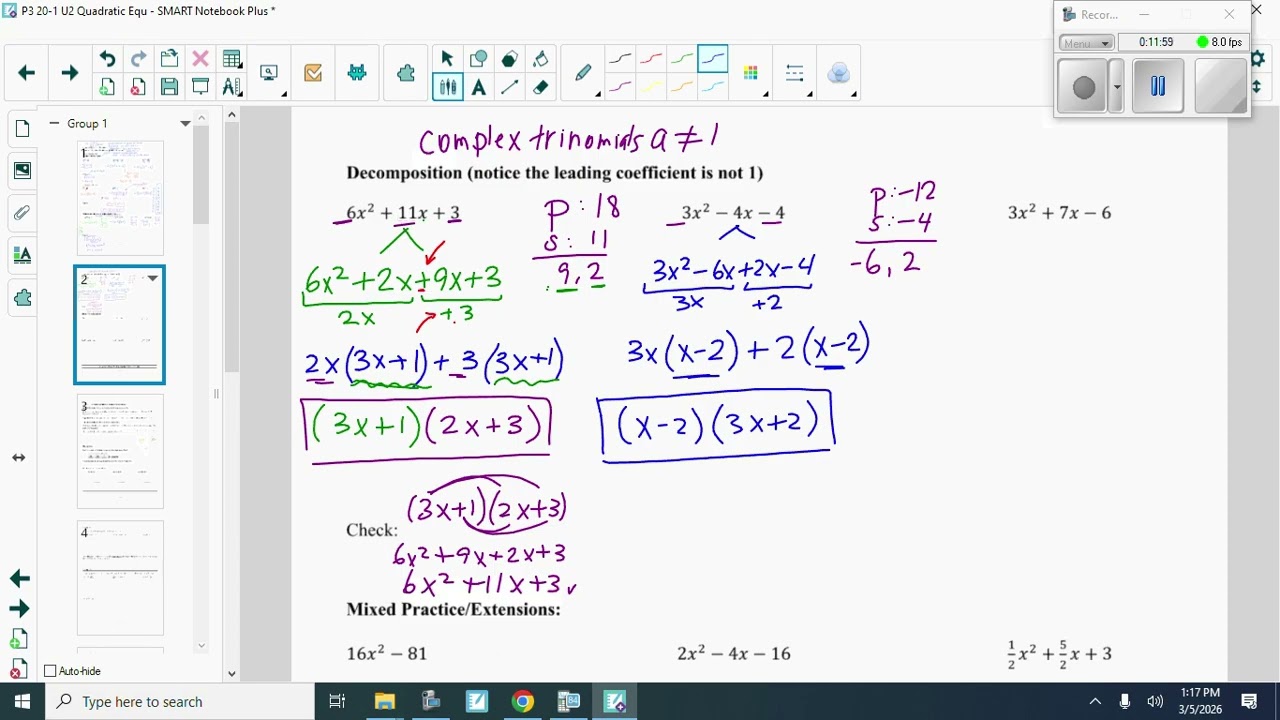 P3 20-1 U2 Quadratic Equ - SMART Notebook Plus *
Recor...
Menu...
0:11:59
8.0 fps
Group 1
1
2
3
4
Auto-hide
complex trinomials a ≠ 1
Decomposition (notice the leading coefficient is not 1)
6x² + 11x + 3
p : 18
s : 11
9, 2
6x² + 2x + 9x + 3
2x + 3
2x(3x+1) + 3(3x+1)
(3x+1)(2x+3)
3x² − 4x − 4
p : -12
s : -4
-6, 2
3x² - 6x + 2x - 4
3x +2
3x(x-2) + 2(x-2)
(x-2)(3x+2)
3x² + 7x − 6
Check:
(3x+1)(2x+3)
6x² + 9x + 2x + 3
6x² + 11x + 3 ✓
Mixed Practice/Extensions:
16x² − 81
2x² − 4x − 16
½x² + 5/2x + 3
Type here to search
1:17 PM
3/5/2026